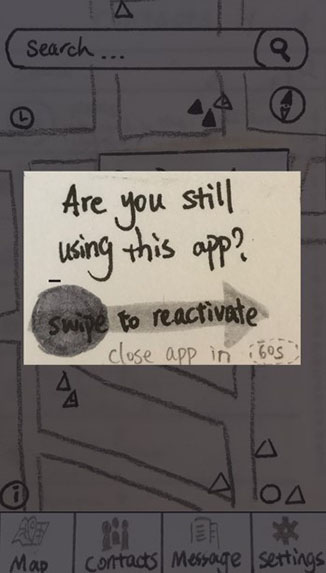 Search ...
Are you still
using this app?
swipe to reactivate
close app in 60s
Map
Contacts
Message
Settings